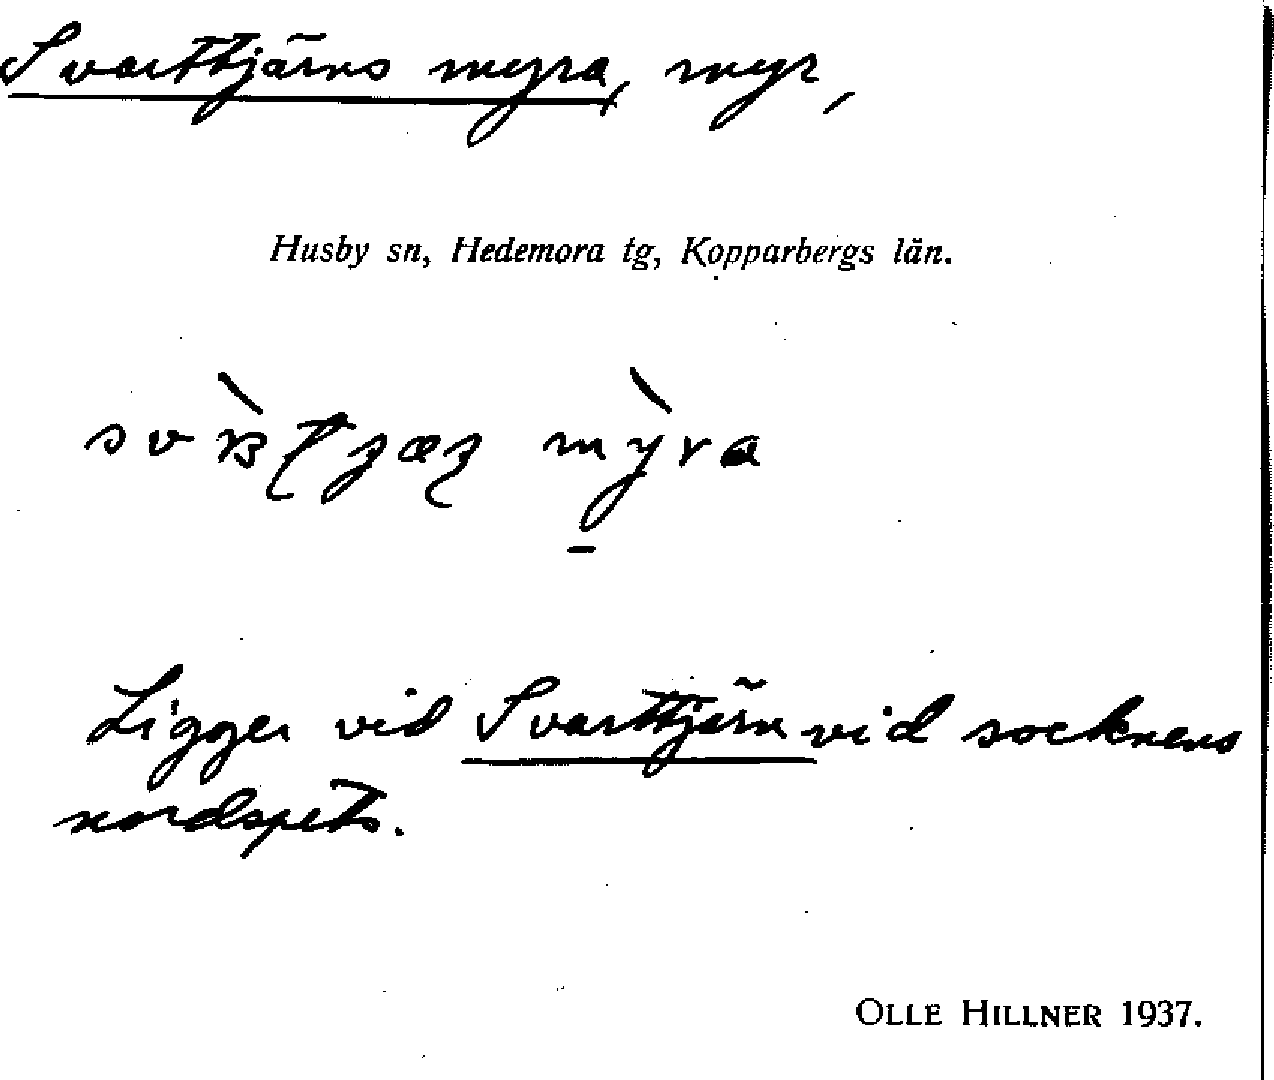 Svarttjärns myra, myr,
Husby sn, Hedemora tg, Kopparbergs län.
Ligger vid Svarttjärn vid socknens
nordspets.
OLLE HILLNER 1937.